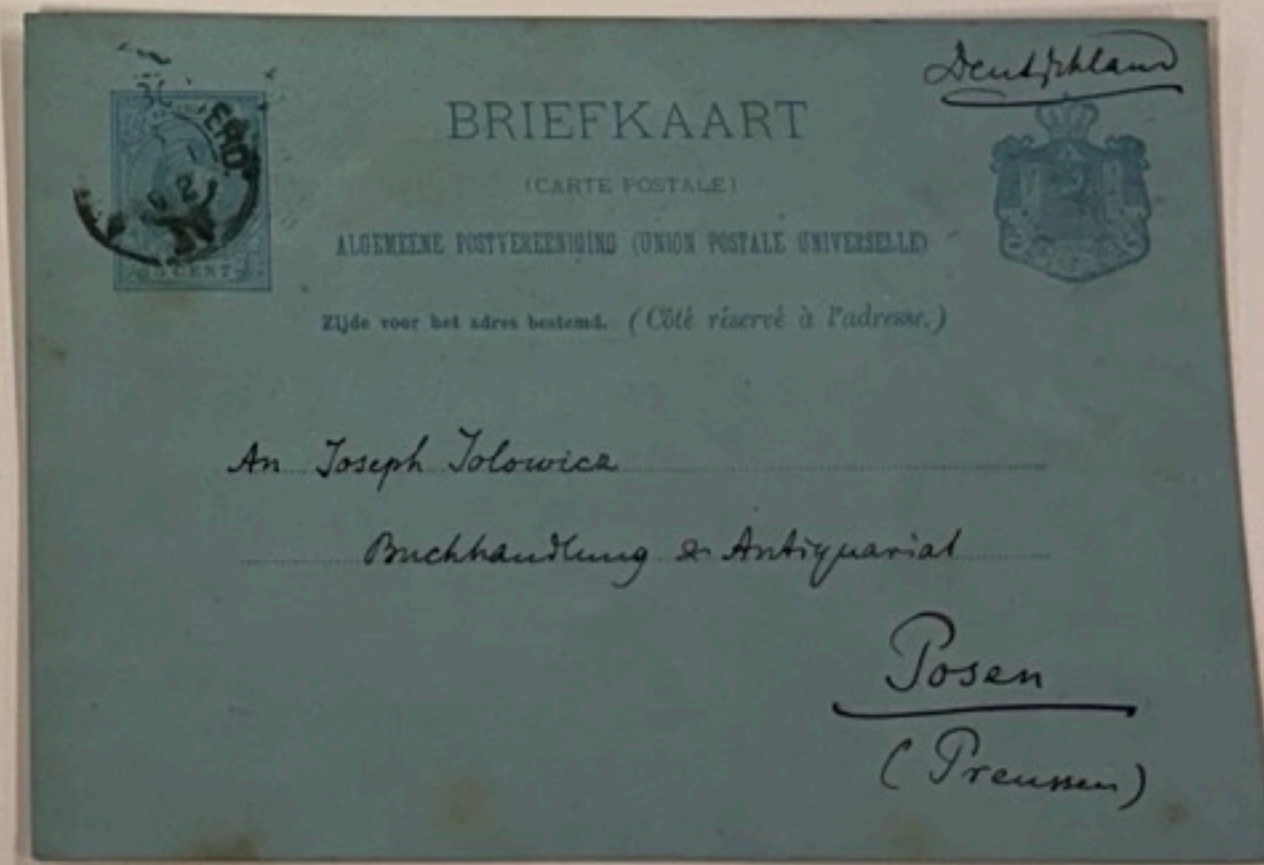 Deutschland
BRIEFKAART
(CARTE POSTALE)
ALGEMEENE POSTVEREENIGING (UNION POSTALE UNIVERSELLE)
5 CENT
Zijde voor het adres bestemd. (Côté réservé à l'adresse.)
An Joseph Jolowicz
Buchhandlung & Antiquariat
Posen
(Preussen)